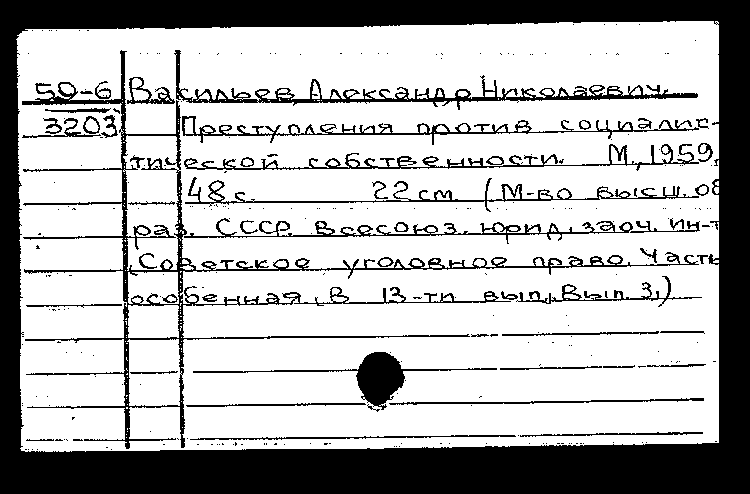 59-6 Васильев, Александр Николаевич.
3203 Преступления против социалис-
тической собственности. М., 1959.
48 с. 22 см. (М-во высш. об
раз. СССР. Всесоюз. юрид. заоч. ин-т
Советское уголовное право. Часть
особенная. В 13-ти вып. Вып. 3.)